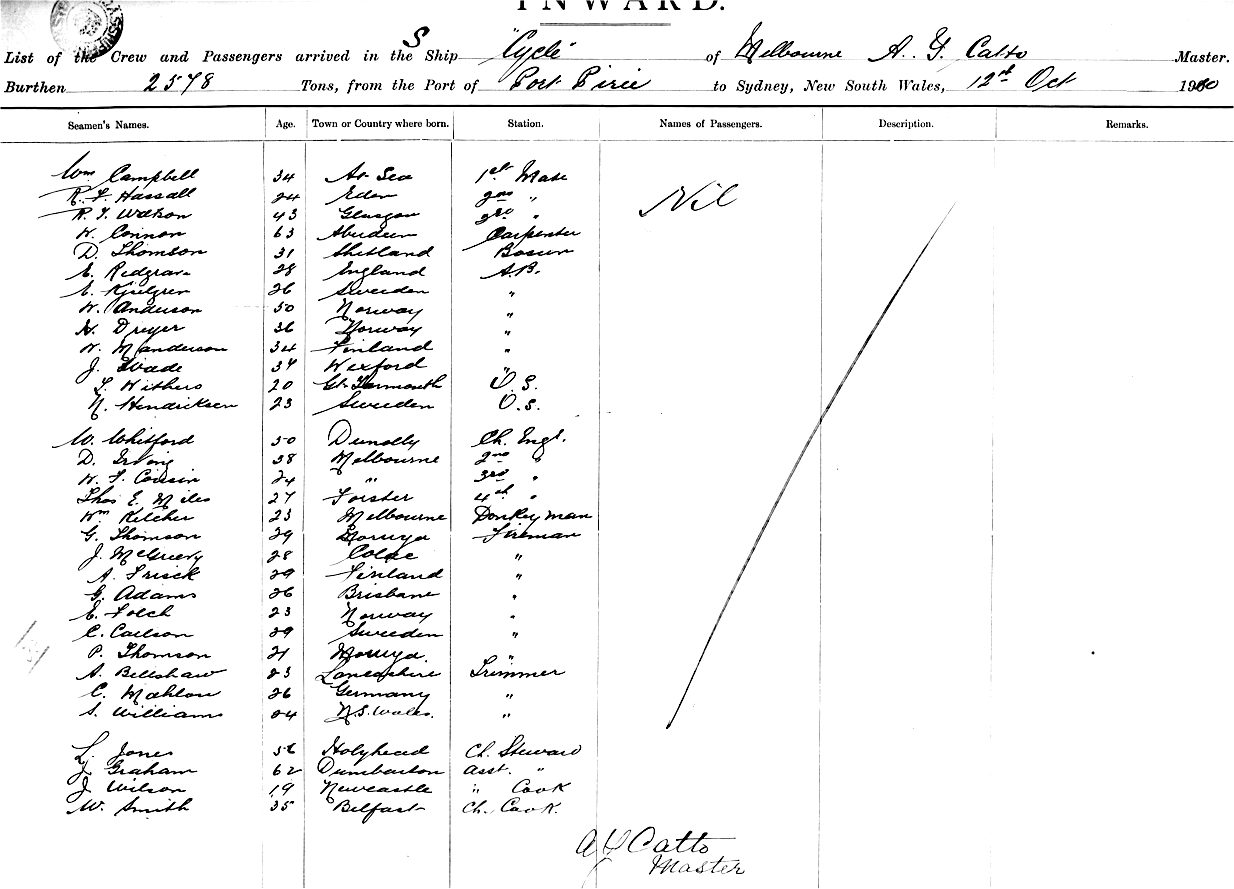 INWARD.
List of the Crew and Passengers arrived in the S Ship "Cycle" of Melbourne A. G. Catto Master.
Burthen 2578 Tons, from the Port of Port Pirie to Sydney, New South Wales, 12th Oct 1900
Seamen's Names. Age. Town or Country where born. Station. Names of Passengers. Description. Remarks.
Wm Campbell 34 At Sea 1st Mate
Nil
R. F. Hassall 24 Eden 2nd "
R. T. Watson 43 Glasgow 3rd "
W. Connon 63 Aberdeen Carpenter
D. Thomson 31 Shetland Bosun
E. Redgrave 28 England A.B.
E. Kjielgren 26 Sweden "
W. Anderson 50 Norway "
H. Dreyer 36 Norway "
W. Manderson 34 Finland "
J. Wade 37 Wexford "
T. Withers 20 Gt. Yarmouth O.S.
N. Hendricksen 23 Sweden O.S.
W. Whitford 50 Dunolly Ch. Engr.
D. Irving 38 Melbourne 2nd "
W. F. Cousin 24 " 3rd "
Thos E. Miles 27 Forster 4th "
Wm Kelcher 23 Melbourne Donkeyman
G. Thomson 29 Moruya Fireman
J. McGreevy 28 Colac "
A. Frisck 29 Finland "
G. Adams 26 Brisbane "
E. Folch 23 Norway "
C. Carlson 29 Sweden "
P. Thomson 21 Moruya "
A. Bellshaw 23 Lancashire Trimmer
C. Mahlow 26 Germany "
S. Williams 24 N.S. Wales. "
L. Jones 56 Holyhead Ch. Steward
J. Graham 62 Dumbarton Asst. "
J. Wilson 19 Newcastle " Cook
W. Smith 35 Belfast Ch. Cook.
A G Catto
Master